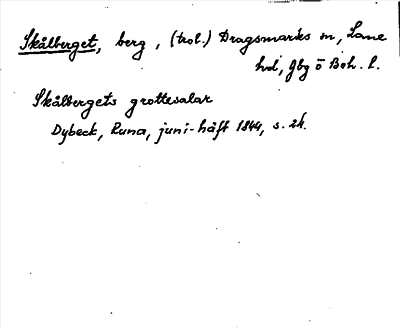 Skålberget, berg, (trol.) Dragsmarks sn, Lane
hd, Gbg o Boh. l.
Skålbergets grottesalar
Dybeck, Runa, juni-häft 1844, s. 24.